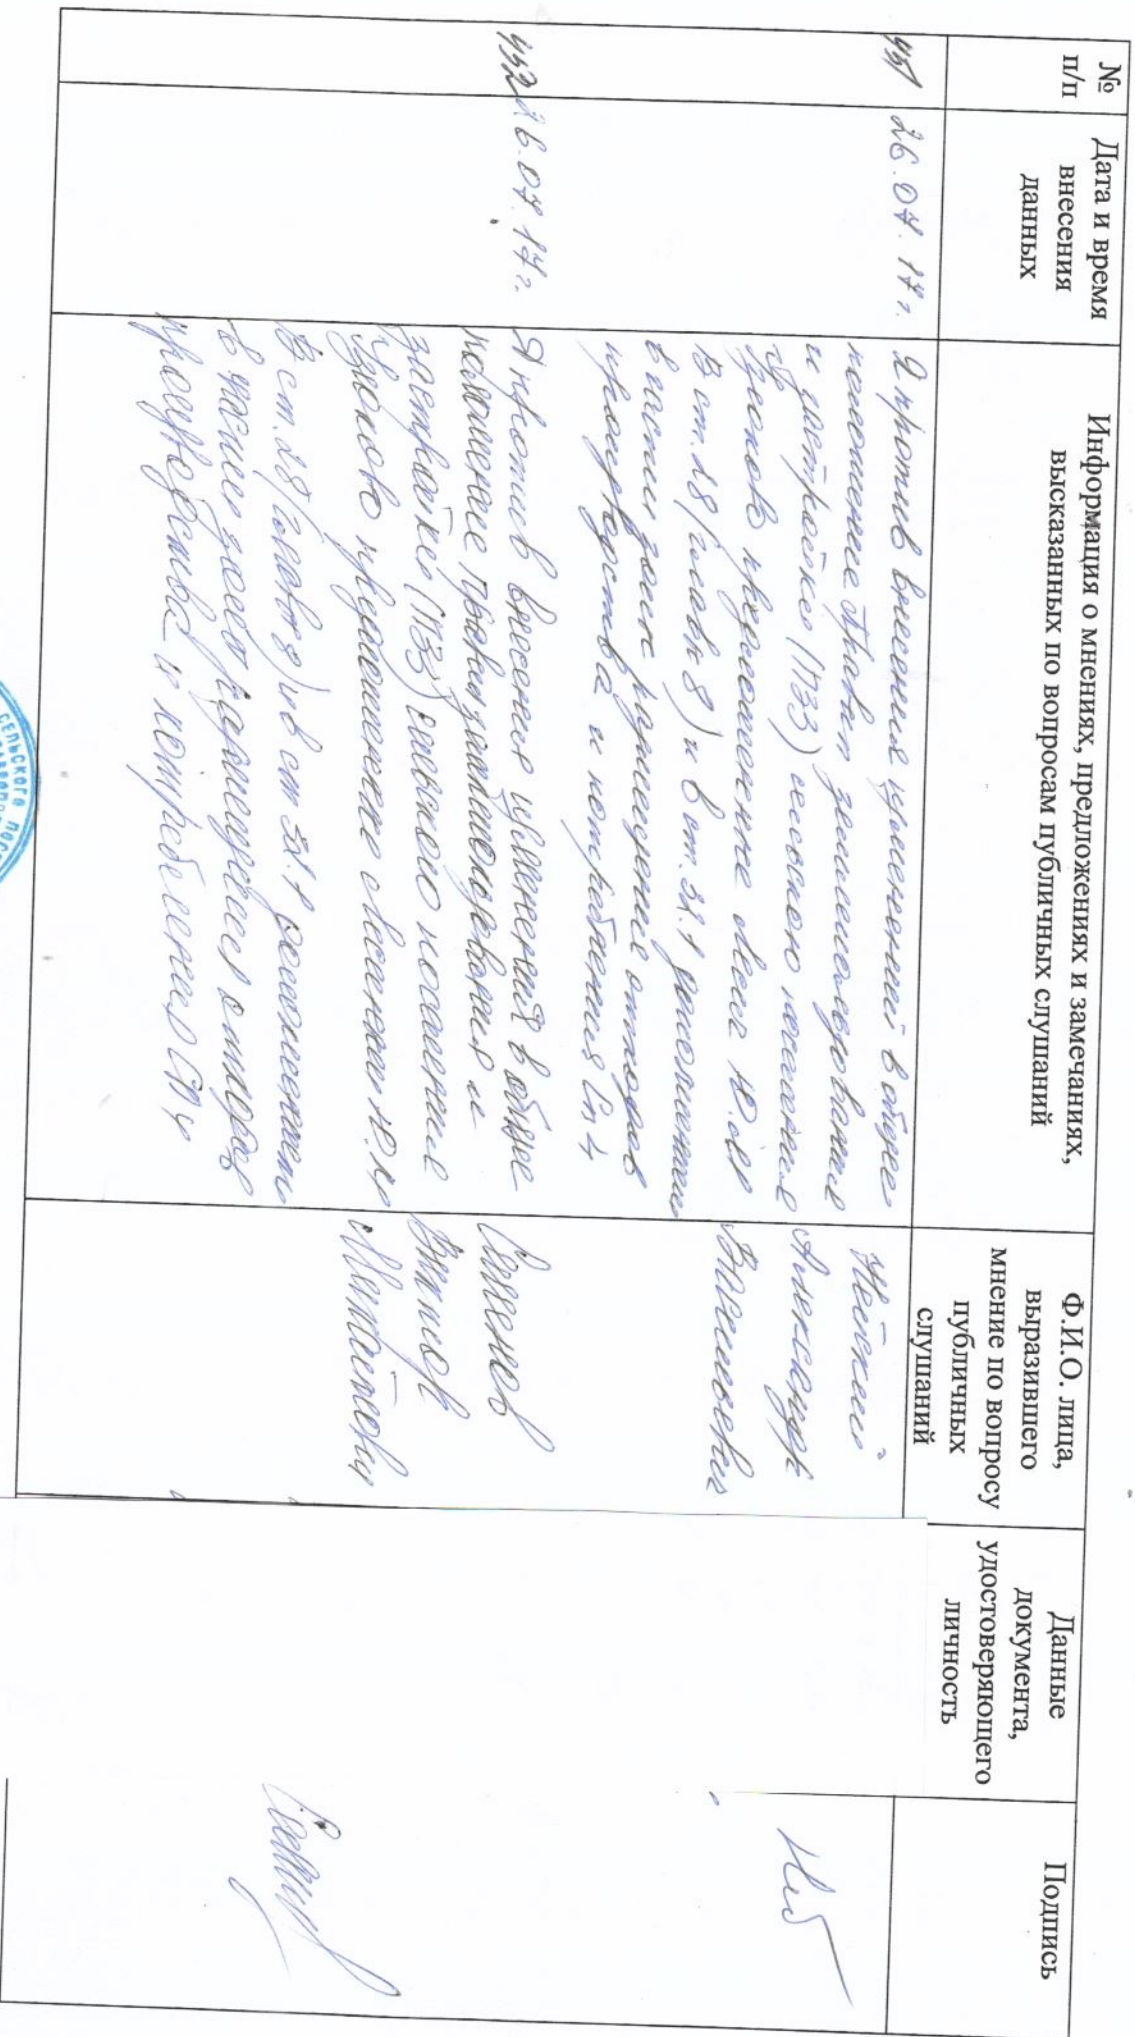 №
п/п
Дата и время
внесения
данных
Информация о мнениях, предложениях и замечаниях,
высказанных по вопросам публичных слушаний
Ф.И.О. лица,
выразившего
мнение по вопросу
публичных
слушаний
Данные
документа,
удостоверяющего
личность
Подпись
451
26.07.17г.
Я против внесения изменений в общее
положение Правил землепользования
и застройки (ПЗЗ) сельского поселения
Узюково предложенные
в ст. 28 (глава 8) и в ст. 31.1 дополнения
в части зоны размещения отходов
производства и потребления Сп4
Александр
Васильевич
452
26.07.17г.
Я против внесения изменения в общее
положение Правил землепользования и
застройки (ПЗЗ) сельского поселения
Узюково предложенные
в ст. 28 (глава 8) и в ст 31.1 дополнения
в части зоны размещения отходов
производства и потребления СП4
Семенов
Виктор
Михайлович
СЕЛЬСКОГО